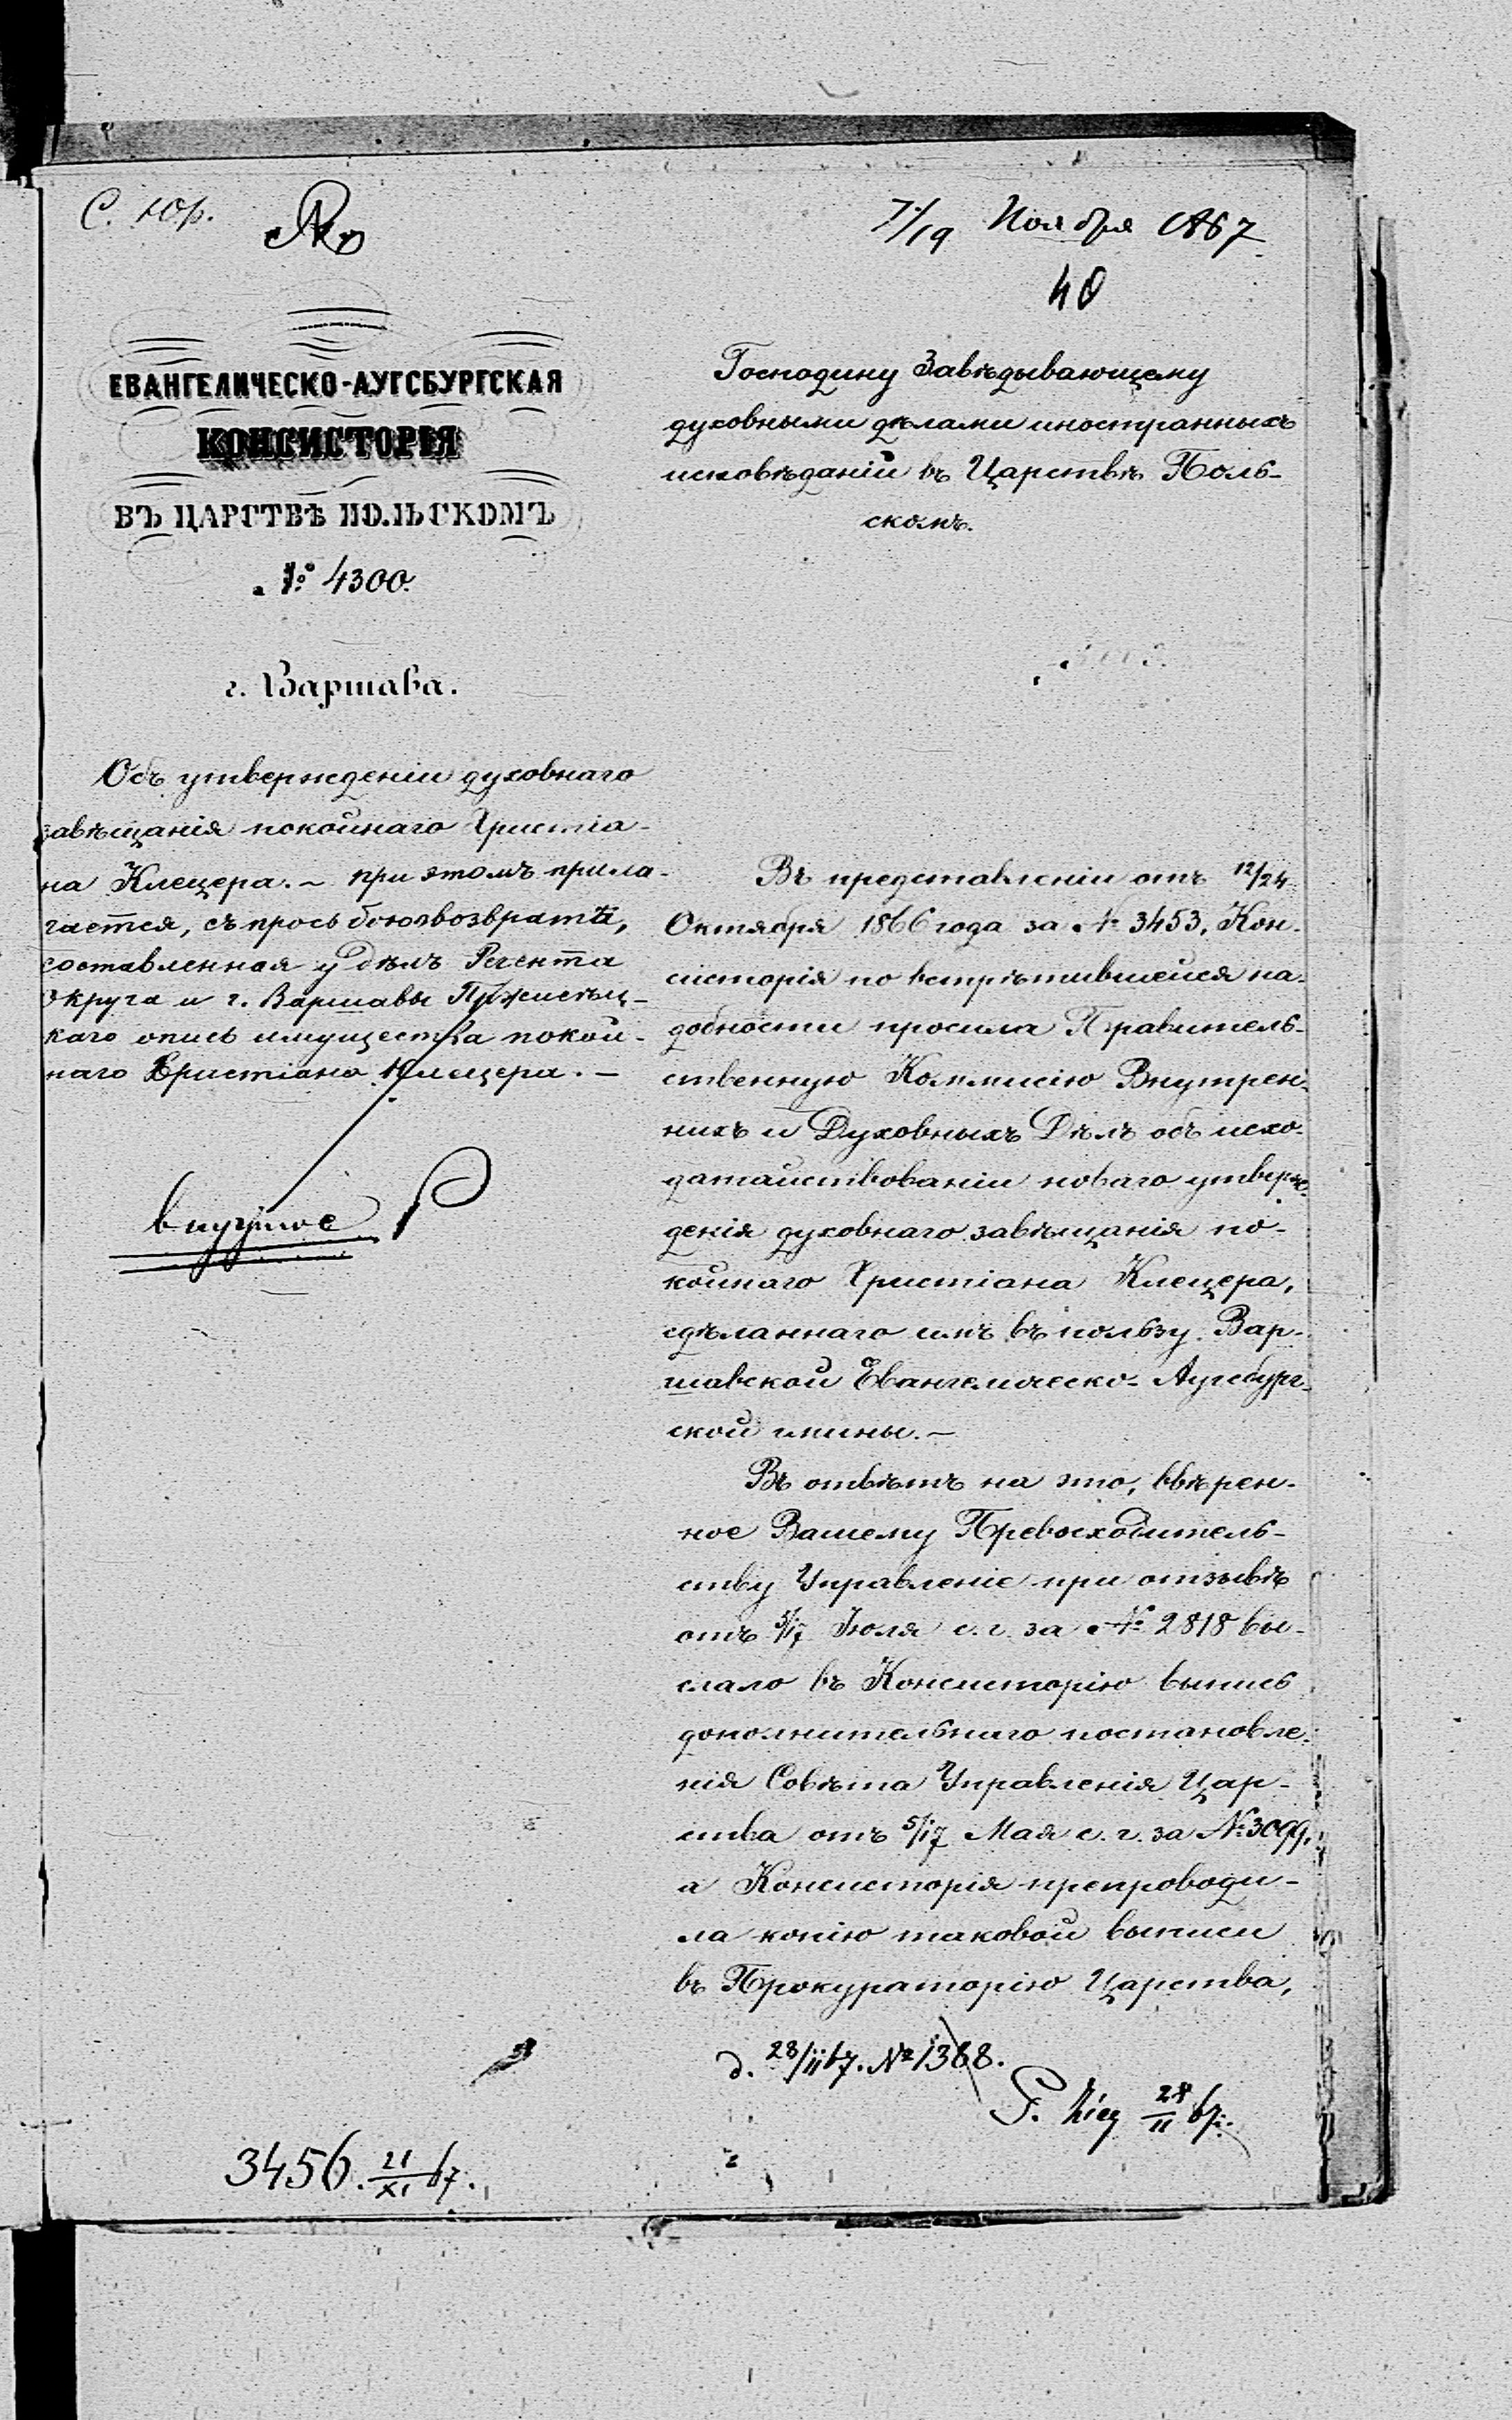 С. Юр.
7/19 Ноября 1867
40
ЕВАНГЕЛИЧЕСКО-АУГСБУРГСКАЯ
КОНСИСТОРІЯ
ВЪ ЦАРСТВѢ ПОЛЬСКОМЪ
№ 4300.
г. Варшава.
Объ утвержденіи духовнаго
завѣщанія покойнаго Христіа-
на Клецера. – при этомъ прила-
гается, съ просьбою возврата,
составленная Регента
Округа и г. Варшавы
каго опись имущества покой-
наго Христіана Клецера. –
Господину Завѣдывающему
духовными дѣлами иностранныхъ
исповѣданій въ Царствѣ Поль-
скомъ.
Въ представленіи отъ 12/24
Октября 1866 года за № 3453, Кон-
систорія по встрѣтившейся на-
добности просила Правитель-
ственную Коммисію Внутрен-
нихъ и Духовныхъ Дѣлъ объ исхо-
датайствованіи новаго утверж-
денія духовнаго завѣщанія по-
койнаго Христіана Клецера,
сдѣланнаго имъ въ пользу Вар-
шавской Евангелическо-Аугсбург-
ской гмины. –
Въ отвѣтъ на это, ввѣрен-
ное Вашему Превосходитель-
ству Управленіе при отзывѣ
отъ 5/17 Іюля с. г. за № 2818 вы-
слало въ Консисторію выпись
дополнительнаго постановле-
нія Совѣта Управленія Цар-
ства отъ 5/17 Мая с. г. за № 3099,
а Консисторія препроводи-
ла копію таковой выписи
въ Прокураторію Царства,
д. 28/11 67. № 1388.
28/11 67.
3456. 21/XI 67.